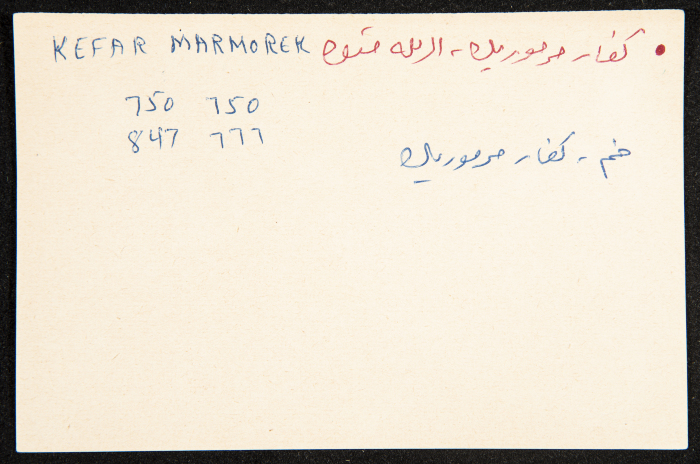 KEFAR MARMOREK كفار مرموريك - الرملة
750 750
847 777
ضم - كفار مرموريك